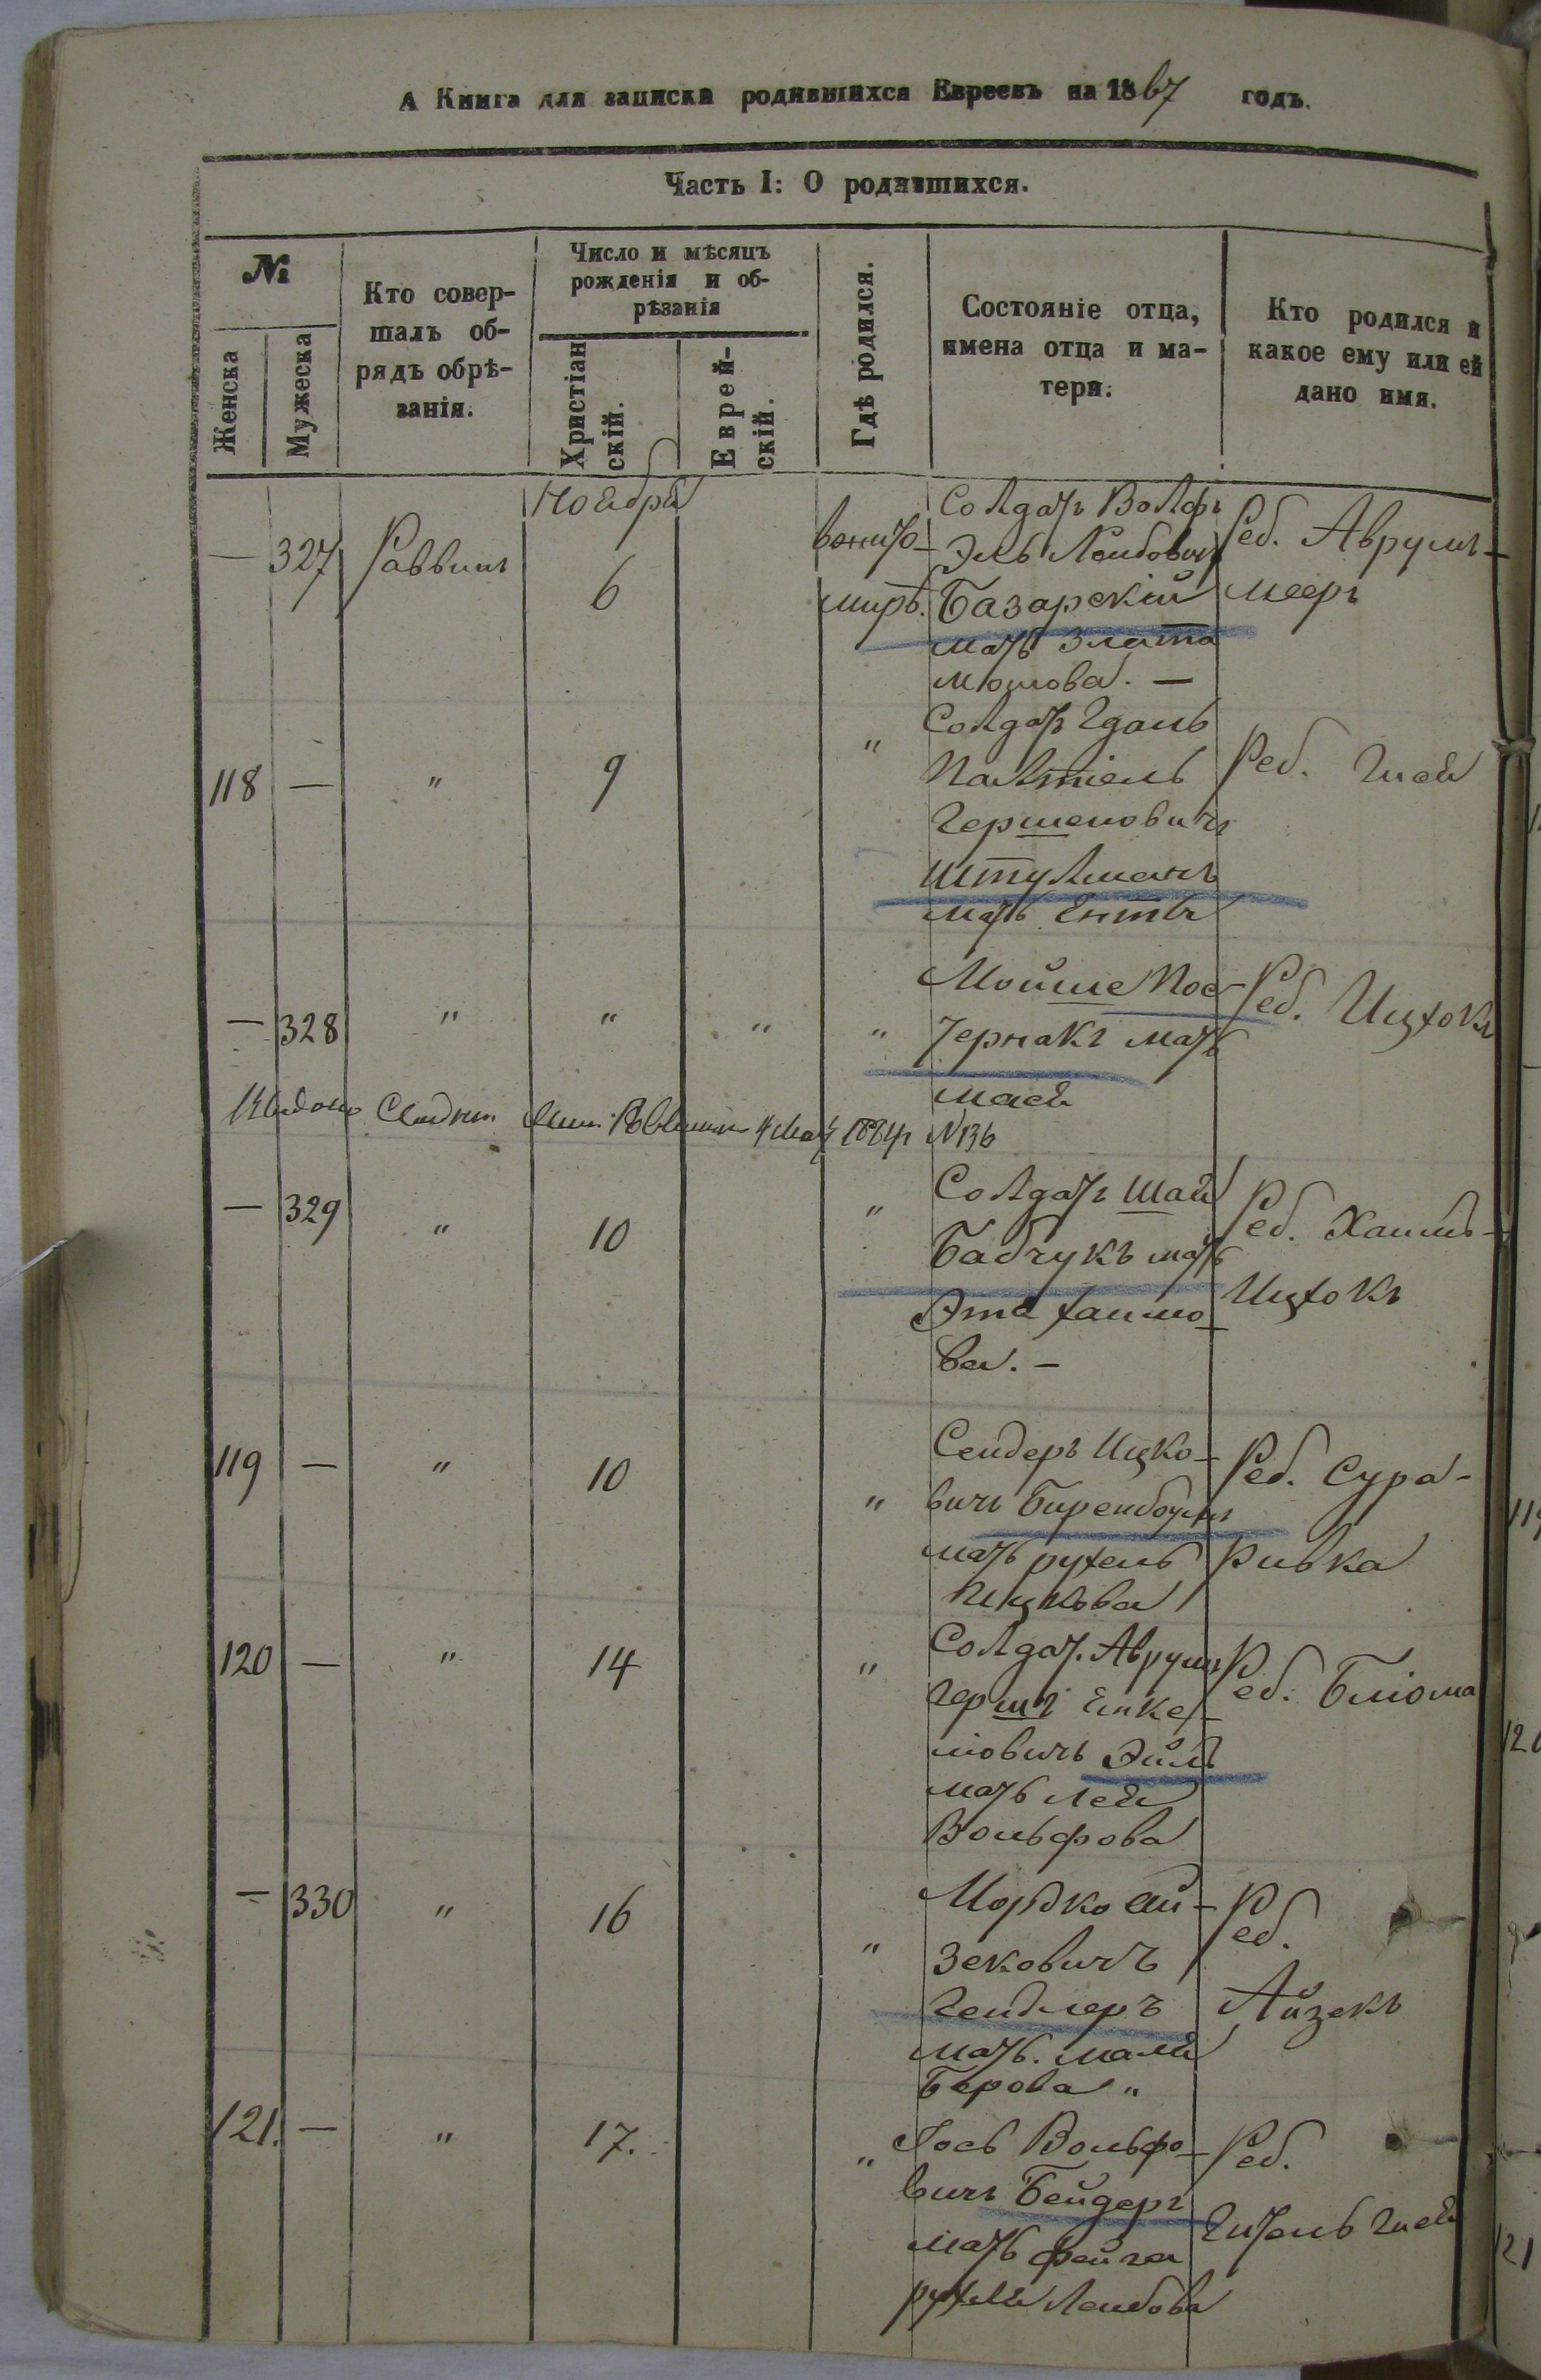 А Книга для записки родившихся Евреевъ на 1867 годъ.
Часть I: О родившихся.
№
Женска
Мужеска
Кто совер-
шалъ об-
рядъ обрѣ-
занія.
Число и мѣсяцъ
рожденія и об-
рѣзанія
Христіан
скій.
Еврей-
скій.
Гдѣ родился.
Состояніе отца,
имена отца и ма-
тери.
Кто родился и
какое ему или ей
дано имя.
Ноября
— 327 Раввинъ 6
Солдатъ Волфъ
Эль Лейбовичъ
Базарскій
мать Злата
Мошова. —
Реб. Аврумъ-
Мееръ
118 — " 9 "
Солдатъ
Палтіель
Гершеновичъ
Штулманъ
мать Ента
Реб.
— 328 " " " "
Мойше Пос-
Чернакъ мать
Мася
Реб. Ицхокъ
Маѣ 1884г №136
— 329 " 10 "
Солдатъ Шая
Бабчукъ мать
Эта Хаимо-
ва. —
Реб. Хаимъ-
Ицхокъ
119 — " 10 "
Сендеръ Ицко-
вичъ Биренбоумъ
мать Рухель
Ицкова
Реб. Сура-
Ривка
120 — " 14 "
Солдат. Аврумъ
Гершъ
мать Лея
Вольфова
Реб. Блюма
— 330 " 16 "
Мордко Ай-
зековичъ
Гендлеръ
мать. Маля
Берова "
Реб.
Айзекъ
121. — " 17. "
Іось Вольфо-
вичъ Бендеръ
мать Фейга
Рухля Лейбова
Реб.